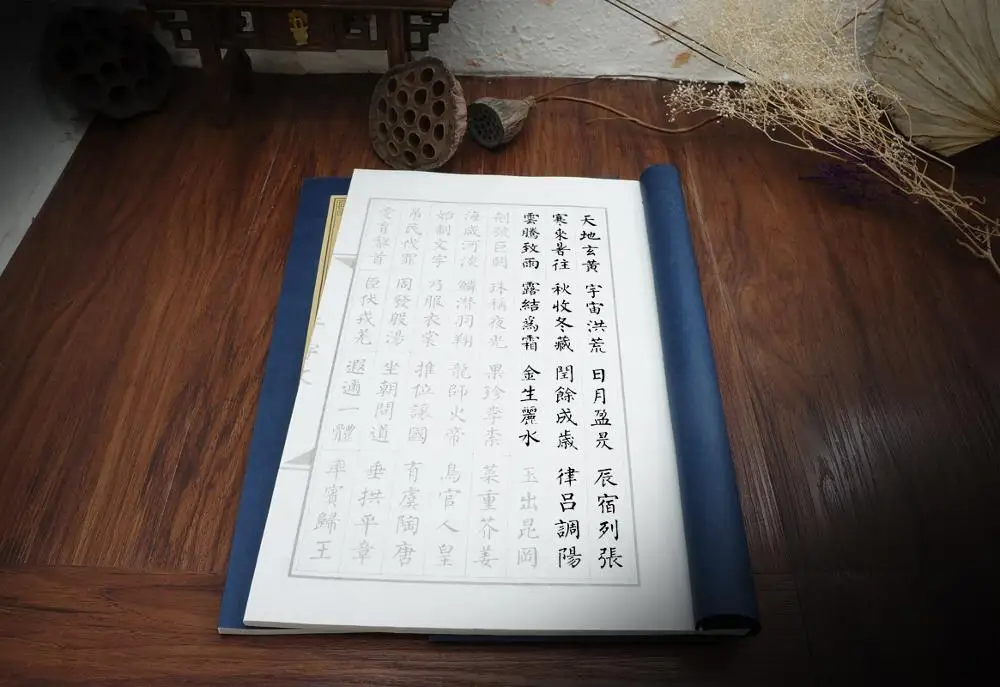 天地玄黃 宇宙洪荒 日月盈昃 辰宿列張
寒來暑往 秋收冬藏 閏餘成歲 律呂調陽
雲騰致雨 露結為霜 金生麗水 玉出昆岡
劍號巨闕 珠稱夜光 果珍李柰 菜重芥姜
海咸河淡 鱗潛羽翔 龍師火帝 鳥官人皇
始制文字 乃服衣裳 推位讓國 有虞陶唐
弔民伐罪 周發殷湯 坐朝問道 垂拱平章
愛育黎首 臣伏戎羌 遐邇一體 率賓歸王